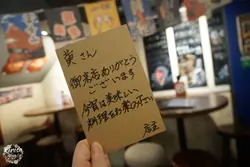 さん
御来店ありがとう
ございます
今宵は美味しい
料理をお楽み下さい
店主